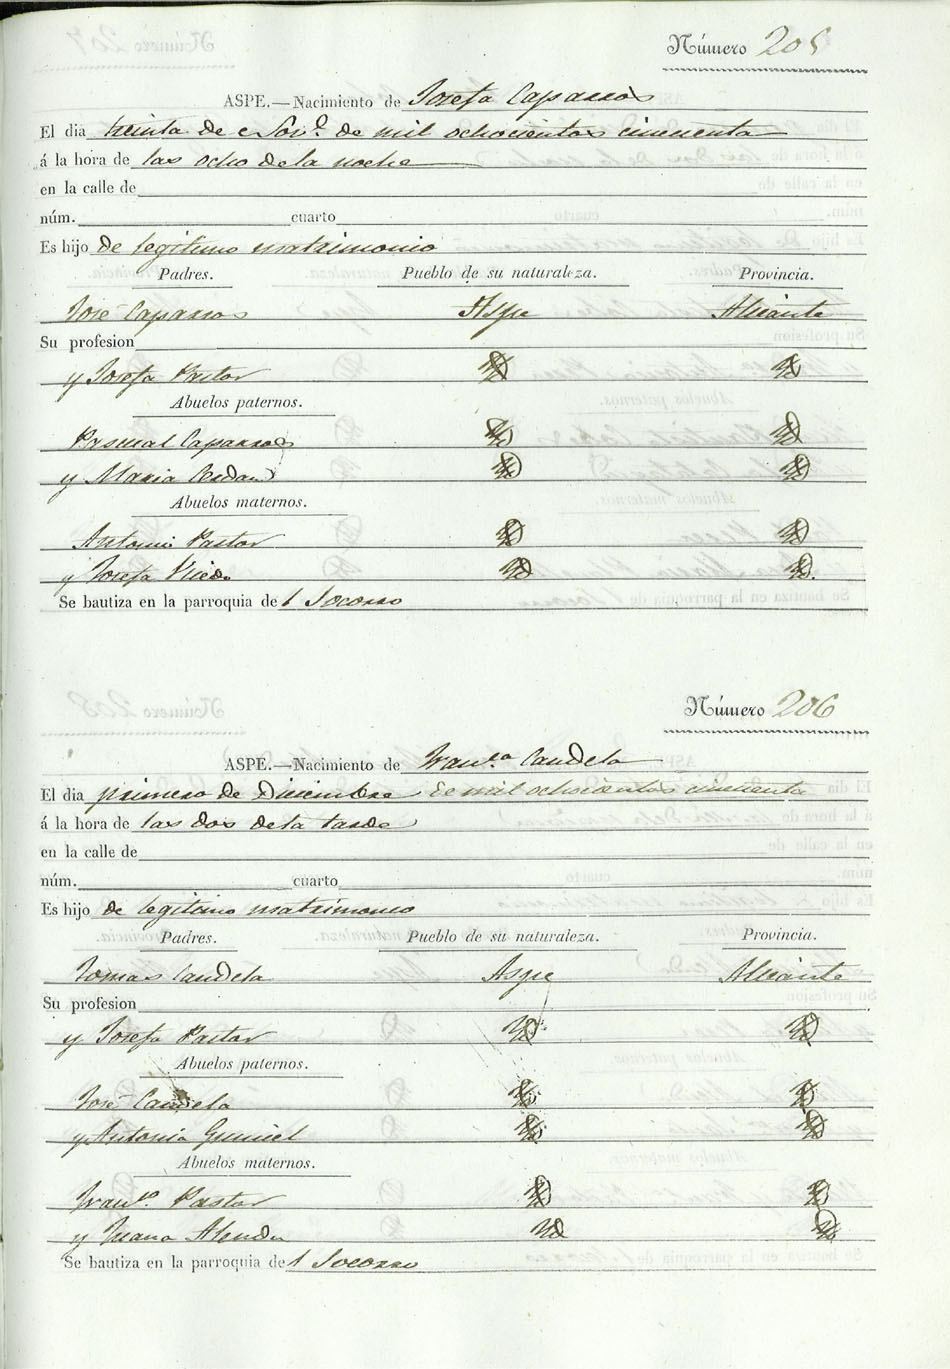 Número 205
ASPE.—Nacimiento de Josefa Caparros
El dia treinta de Nov.e de mil ochocientos cincuenta
á la hora de las ocho de la noche
en la calle de
núm. cuarto
Es hijo de legitimo matrimonio
Padres. Pueblo de su naturaleza. Provincia.
José Caparros Aspe Alicante
Su profesion
y Josefa Pastor Yd Yd
Abuelos paternos.
Pascual Caparros Yd Yd
y Maria Cerdan Yd Yd
Abuelos maternos.
Antonio Pastor Yd Yd
y Josefa Yd Yd.
Se bautiza en la parroquia del Socorro
Número 206
ASPE.—Nacimiento de Fran.ca Candela
El dia primero de Diciembre de mil ochocientos cincuenta
á la hora de las dos de la tarde
en la calle de
núm. cuarto
Es hijo de legitimo matrimonio
Padres. Pueblo de su naturaleza. Provincia.
Tomas Candela Aspe Alicante
Su profesion
y Josefa Pastor Yd. Yd
Abuelos paternos.
José Candela Yd. Yd
y Antonia Yd. Yd
Abuelos maternos.
Fran.co Pastor Yd Yd
y Yd Yd
Se bautiza en la parroquia del Socorro